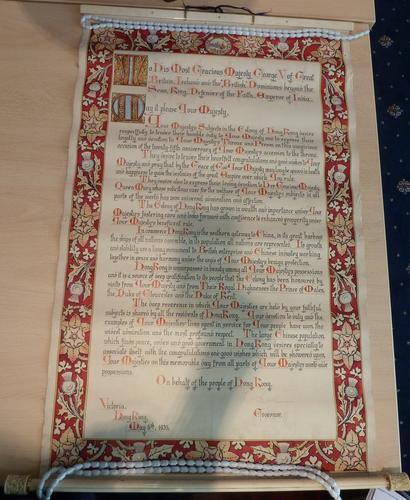 To His Most Gracious Majesty George V of Great
Britain, Ireland and the British Dominions beyond the
Seas, King, Defender of the Faith, Emperor of India.
May it please Your Majesty,
Your Majesty's Subjects in the Colony of Hong Kong desire
respectfully to tender their humble duty to Your Majesty and to express their
loyalty and devotion to Your Majesty's Throne and Person on this auspicious
occasion of the twenty-fifth anniversary of Your Majesty's accession to the throne.
They desire to tender their heartfelt congratulations and good wishes to Your
Majesty and pray that by the Grace of God Your Majesty may long be spared in health
and happiness to guide the destinies of the great Empire over which You rule.
They desire also to express their loving devotion to Her Gracious Majesty,
Queen Mary whose solicitous care for the welfare of Your Majesty's subjects in all
parts of the world has won universal veneration and affection.
The Colony of Hong Kong has grown in wealth and importance under Your
Majesty's fostering care and looks forward with confidence to enhanced prosperity under
Your Majesty's beneficent rule.
In commerce Hong Kong is the southern gateway to China, in its great harbour
the ships of all nations assemble, in its population all nations are represented. Its growth
and stability are a living monument to British enterprise and Chinese industry working
together in peace and harmony under the aegis of Your Majesty's benign protection.
Hong Kong is unsurpassed in beauty among all Your Majesty's possessions
and it is a source of deep gratification to its people that the Colony has been honoured by
visits from Your Majesty and from Their Royal Highnesses the Prince of Wales,
the Duke of Gloucester and the Duke of Kent.
The deep reverence in which Your Majesties are held by your faithful
subjects is shared by all the residents of Hong Kong. Your devotion to duty and the
examples of Your Majesties' lives spent in service for Your people have won the
widest admiration and the most profound respect. The large Chinese population,
which finds peace, order and good government in Hong Kong desires specially to
associate itself with the congratulations and good wishes which will be showered upon
Your Majesties on this memorable day from all parts of Your Majesty's world-wide
possessions.
On behalf of the people of Hong Kong,
Victoria,
Hong Kong,
May 6th, 1935.
Governor.